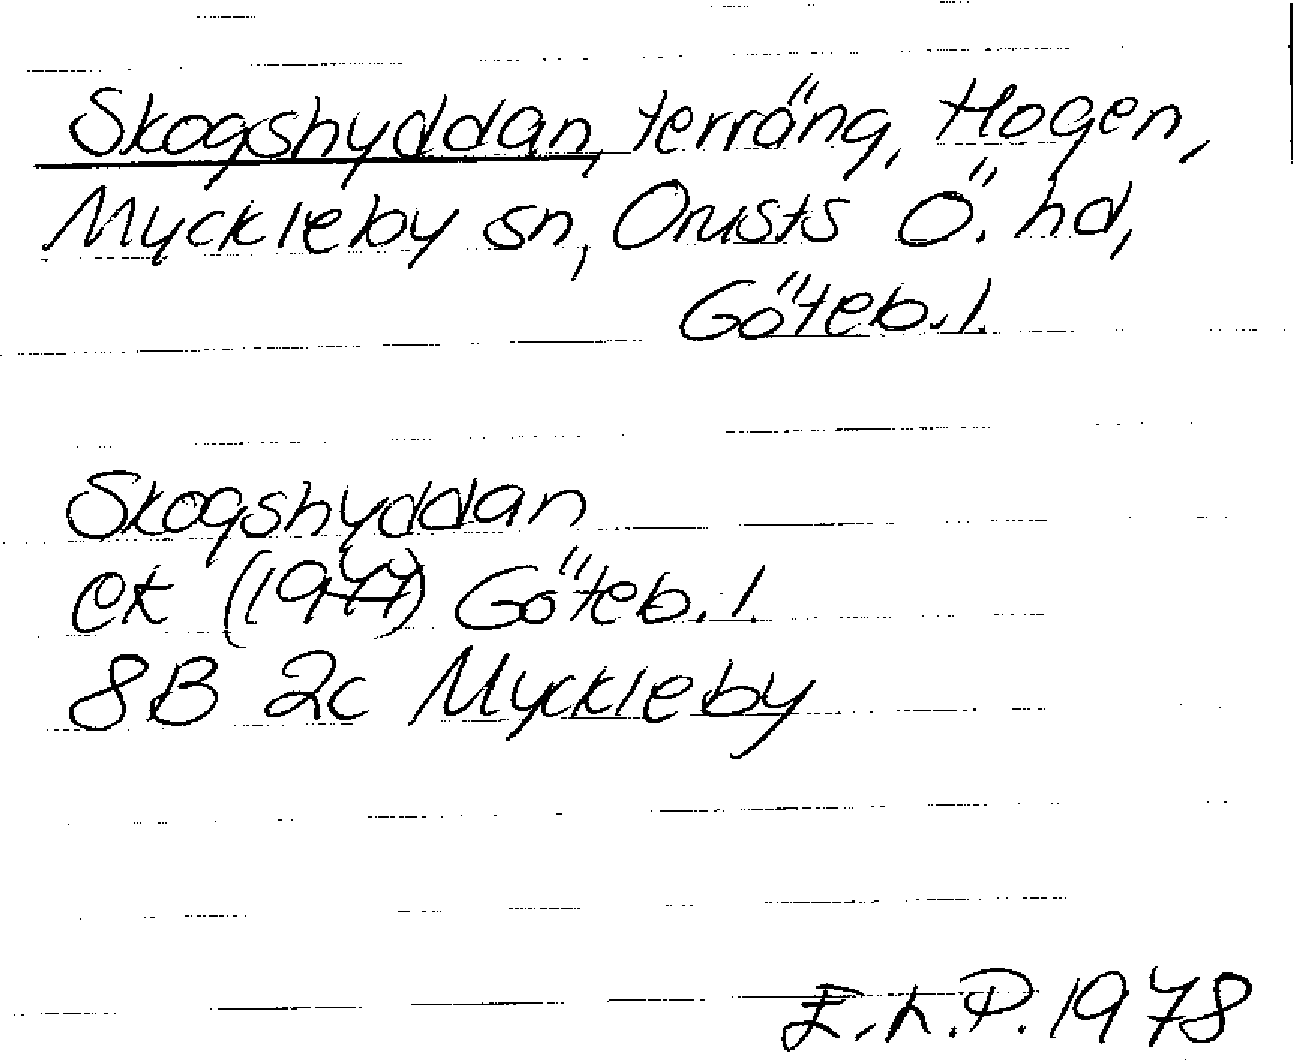 Skogshyddan, terräng, Hogen,
Myckleby sn, Orusts Ö. hd,
Göteb. l.
Skogshyddan
ek (1977) Göteb. l.
8B 2c Myckleby
E.h.P. 1978